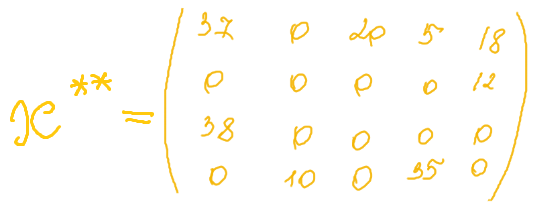 37 0 20 5 18
0 0 0 0 12
x** = 38 0 0 0 0
0 10 0 35 0